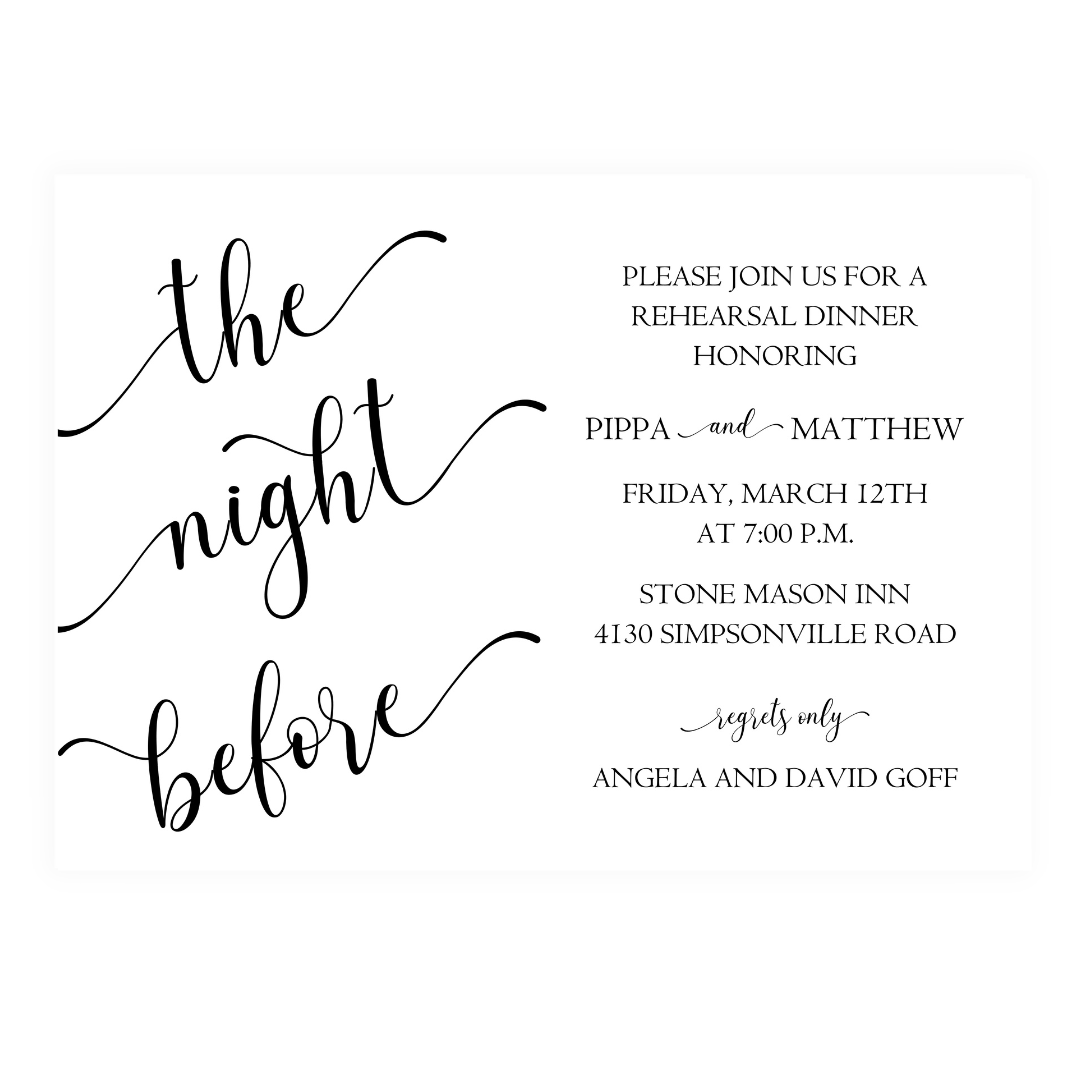 the
night
before
PLEASE JOIN US FOR A
REHEARSAL DINNER
HONORING
PIPPA and MATTHEW
FRIDAY, MARCH 12TH
AT 7:00 P.M.
STONE MASON INN
4130 SIMPSONVILLE ROAD
regrets only
ANGELA AND DAVID GOFF